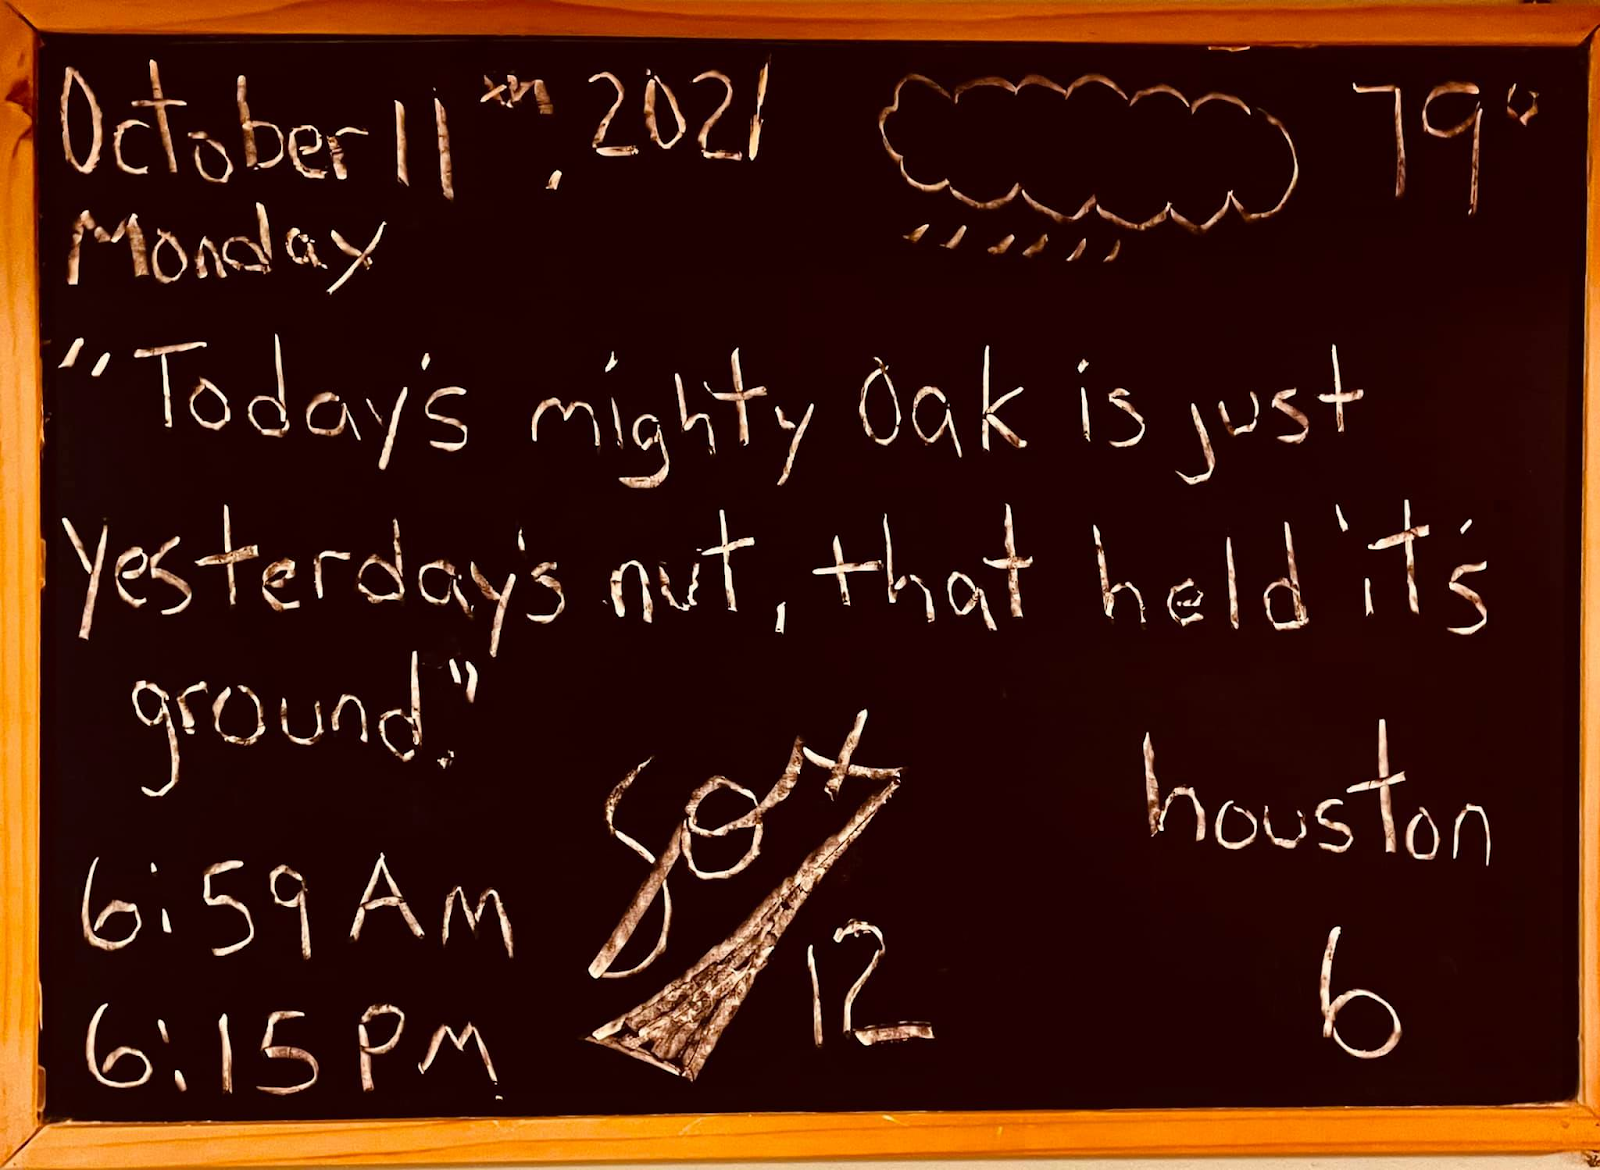 October 11th, 2021
79°
Monday
"Today's mighty Oak is just
yesterday's nut, that held it's
ground."
Sox
houston
6:59 AM
12
6
6:15 PM